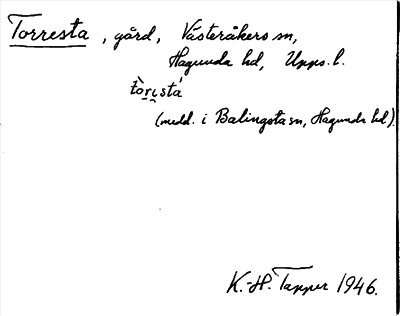 Torresta, gård, Västeråkers sn,
Hagunda hd, Upps. l.
tòrı̣stá
(medd. i Balingsta sn, Hagunda hd).
K.-H. Tapper 1946.